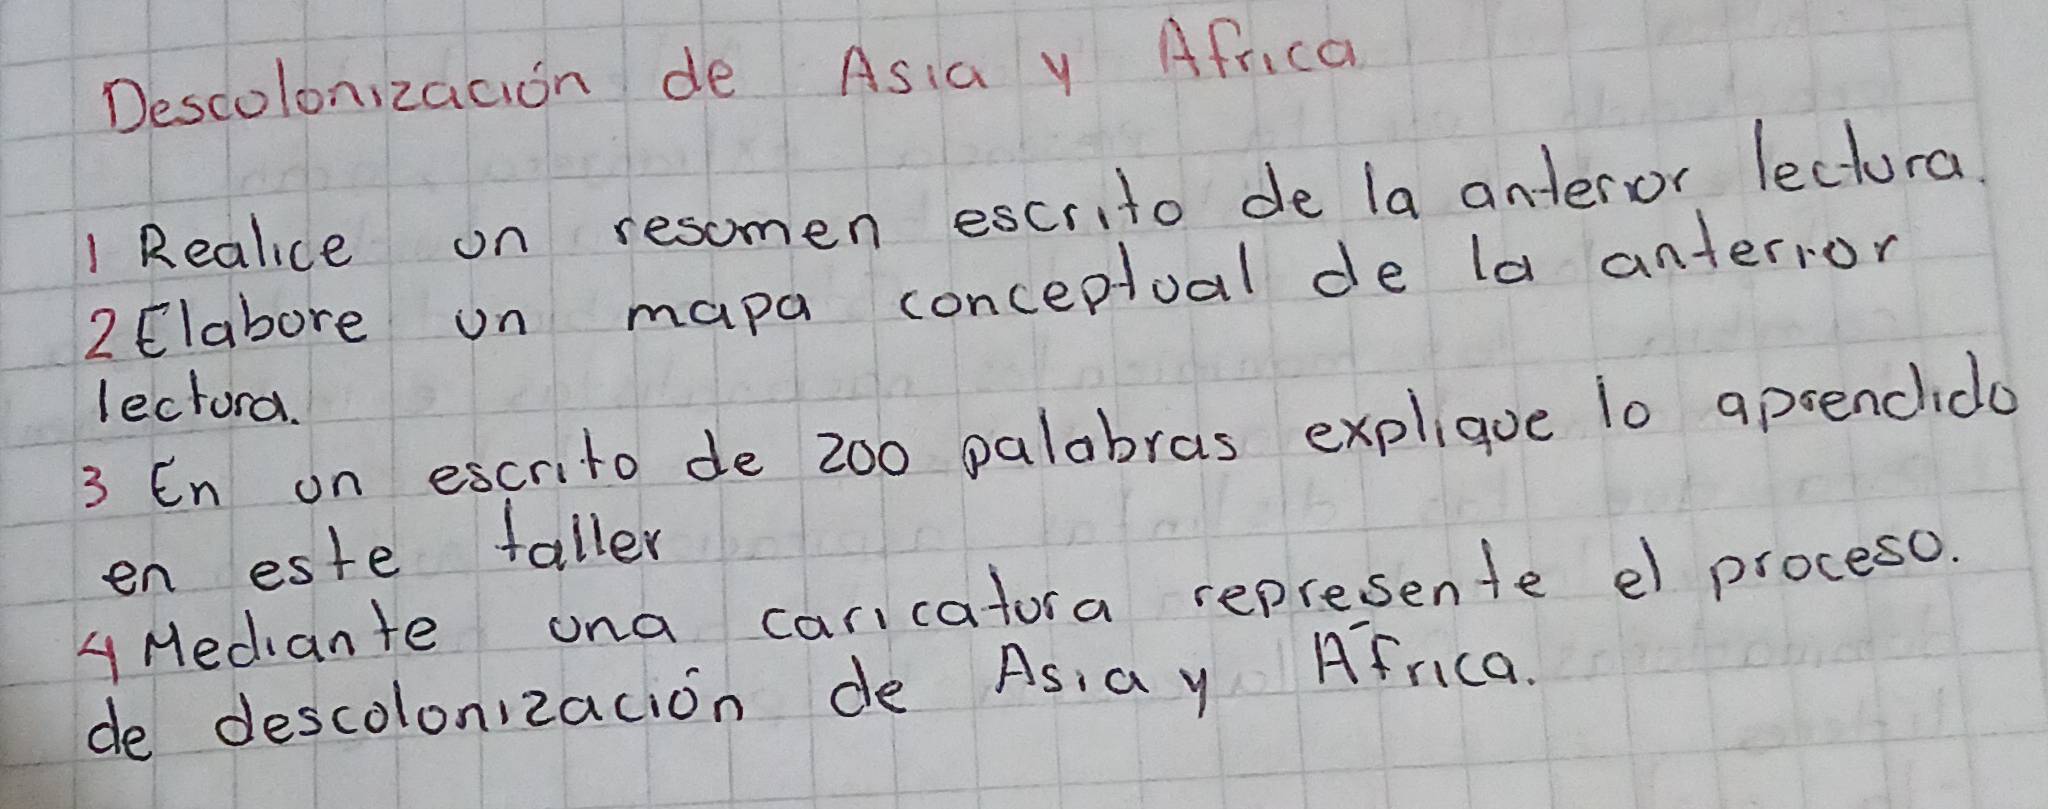 Descolonización de Asia y Africa
1 Realice un resumen escrito de la anterior lectura.
2 Elabore un mapa conceptual de la anterior
lectura.
3 En un escrito de 200 palabras explique lo aprendido
en este taller
4 Mediante una caricatura represente el proceso.
de descolonización de Asia y Africa.